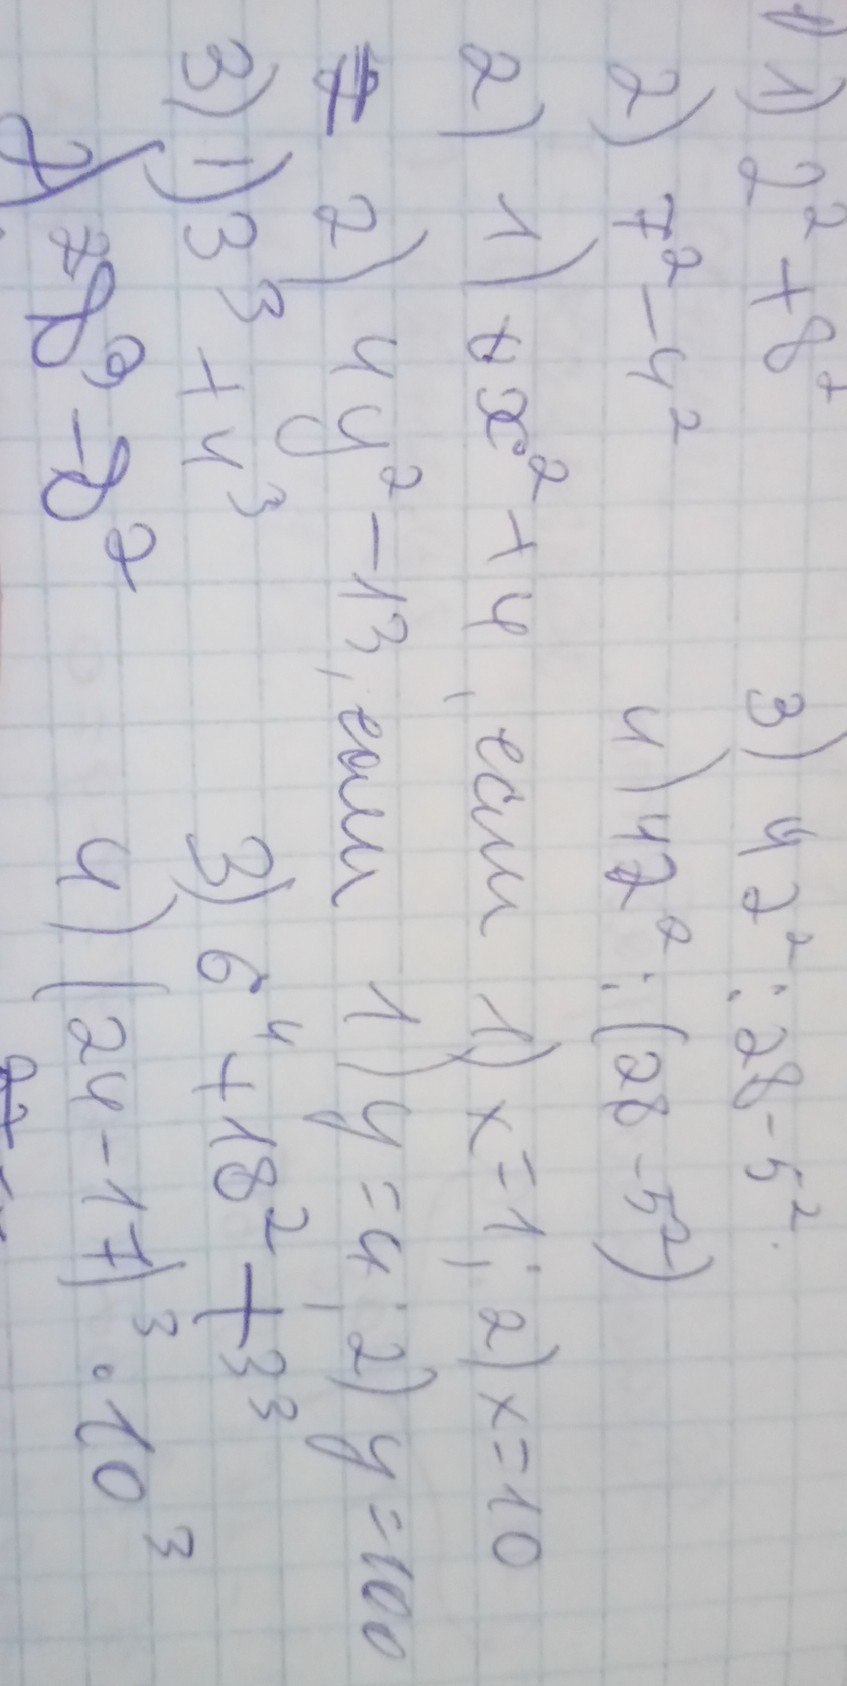 1) 1) 2² + 8² 3) 42² : 28 - 5².
2) 7² - 4² 4) 42² : (28 - 5²)
2) 1) x² + 4, если 1) x = 1; 2) x = 10
2) 4y² - 13, если 1) y = 4; 2) y = 100
3) 1) 3³ + 4³ 3) 6⁴ + 18² + 3³
2) 8³ - 8² 4) (24 - 17)³ · 10³